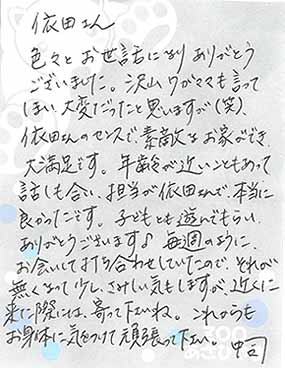 依田さん
色々とお世話になり ありがとう
ございました。沢山ワガママも言って
しまい大変だったと思いますが(笑)、
依田さんのセンスで、素敵なお家ができ、
大満足です。年齢が近いこともあって
話しも合い、担当が依田さんで、本当に
良かったです。子どもとも遊んでもらい、
ありがとうございます♪ 毎週のように、
お会いして打ち合わせしていたので、それが
無くなって少しさみしい気もしますが、近くに
来た際には、寄って下さいね。これからも
お身体に気をつけて頑張って下さい。中司